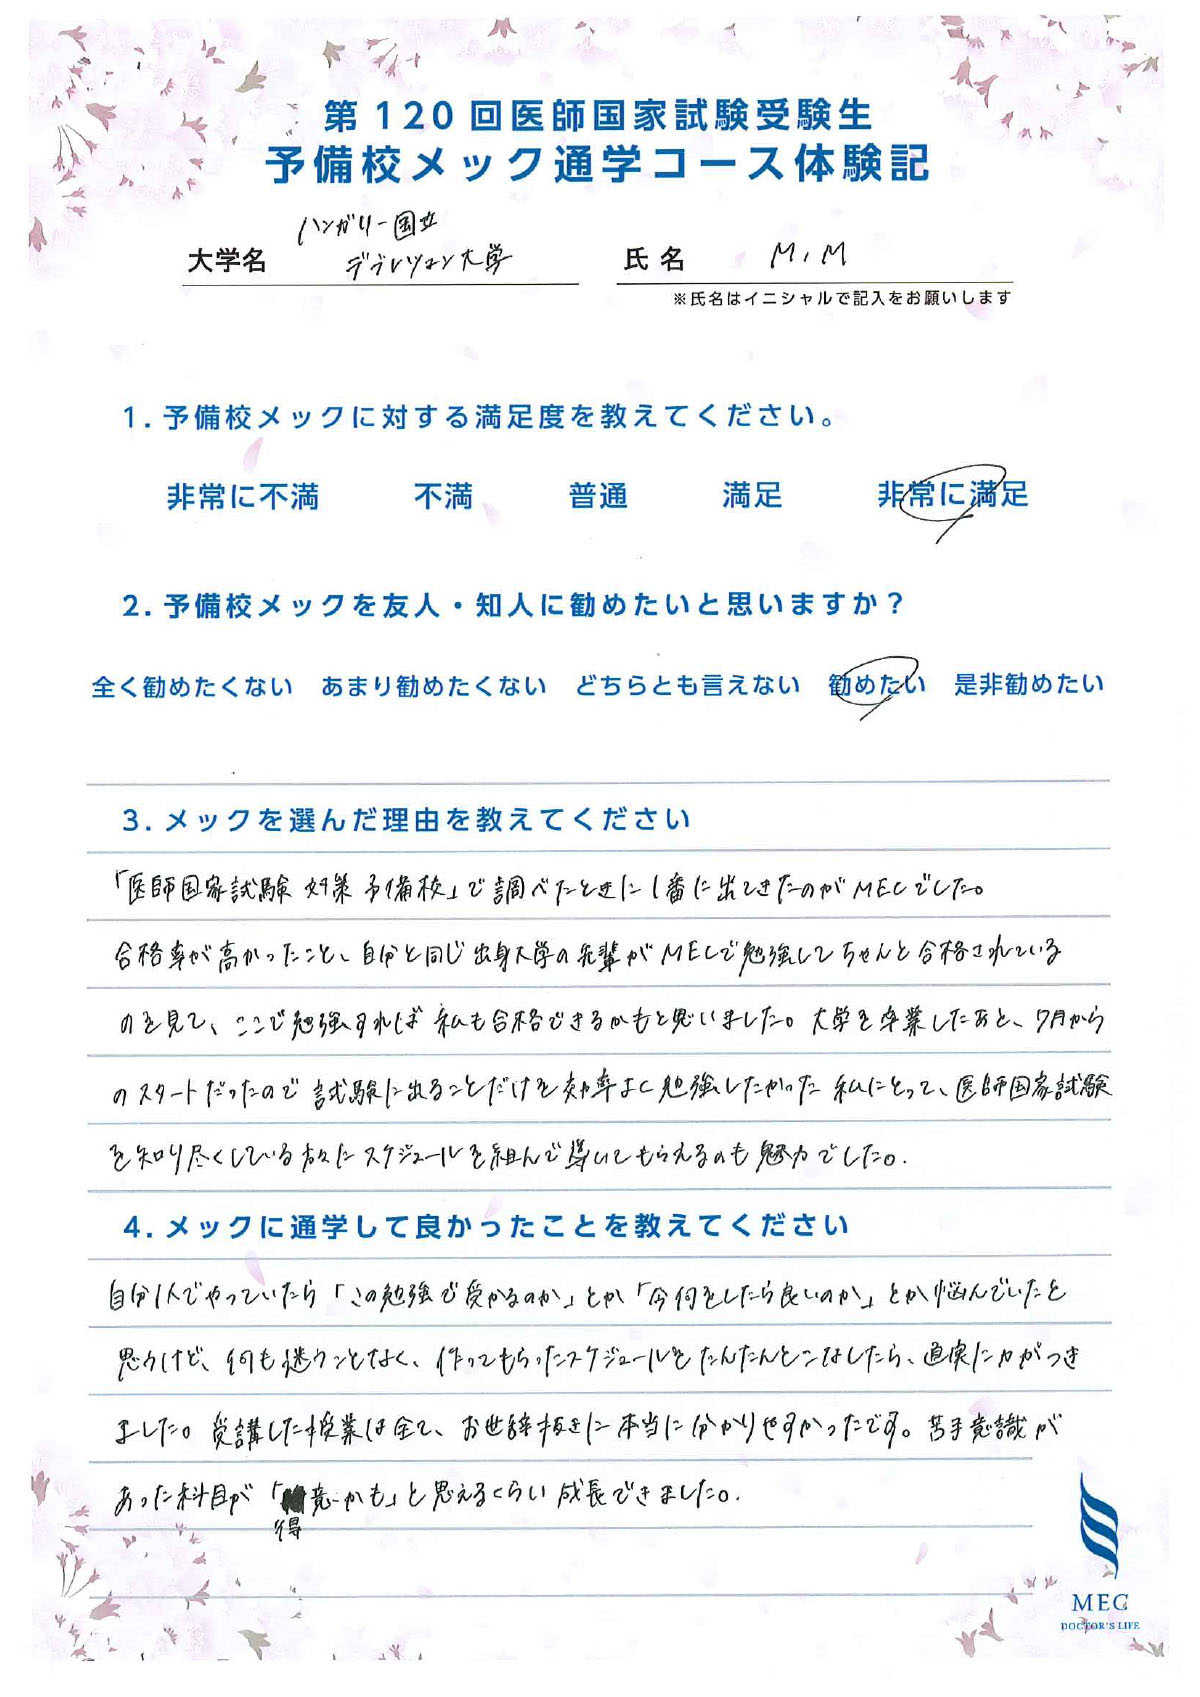 第120回医師国家試験受験生
予備校メック通学コース体験記
ハンガリー国立
大学名 デブレツェン大学 氏名 M.M
※氏名はイニシャルで記入をお願いします
1. 予備校メックに対する満足度を教えてください。
非常に不満 不満 普通 満足 非常に満足
2. 予備校メックを友人・知人に勧めたいと思いますか？
全く勧めたくない あまり勧めたくない どちらとも言えない 勧めたい 是非勧めたい
3. メックを選んだ理由を教えてください
「医師国家試験 対策 予備校」で調べたときに1番に出てきたのがMECでした。
合格率が高かったこと、自分と同じ出身大学の先輩がMECで勉強してちゃんと合格されている
のを見て、ここで勉強すれば私も合格できるかもと思いました。大学を卒業したあと、7月から
のスタートだったので試験に出ることだけを効率よく勉強したかった私にとって、医師国家試験
を知り尽くしている方々にスケジュールを組んで導いてもらえるのも魅力でした。
4. メックに通学して良かったことを教えてください
自分1人でやっていたら「この勉強で受かるのか」とか「今何をしたら良いのか」とか悩んでいたと
思うけど、何も迷うことなく、作ってもらったスケジュールをたんたんとこなしたら、着実に力がつき
ました。受講した授業は全て、お世辞抜きに本当に分かりやすかったです。苦手意識が
あった科目が「得意かも」と思えるくらい成長できました。
MEC
DOCTOR'S LIFE